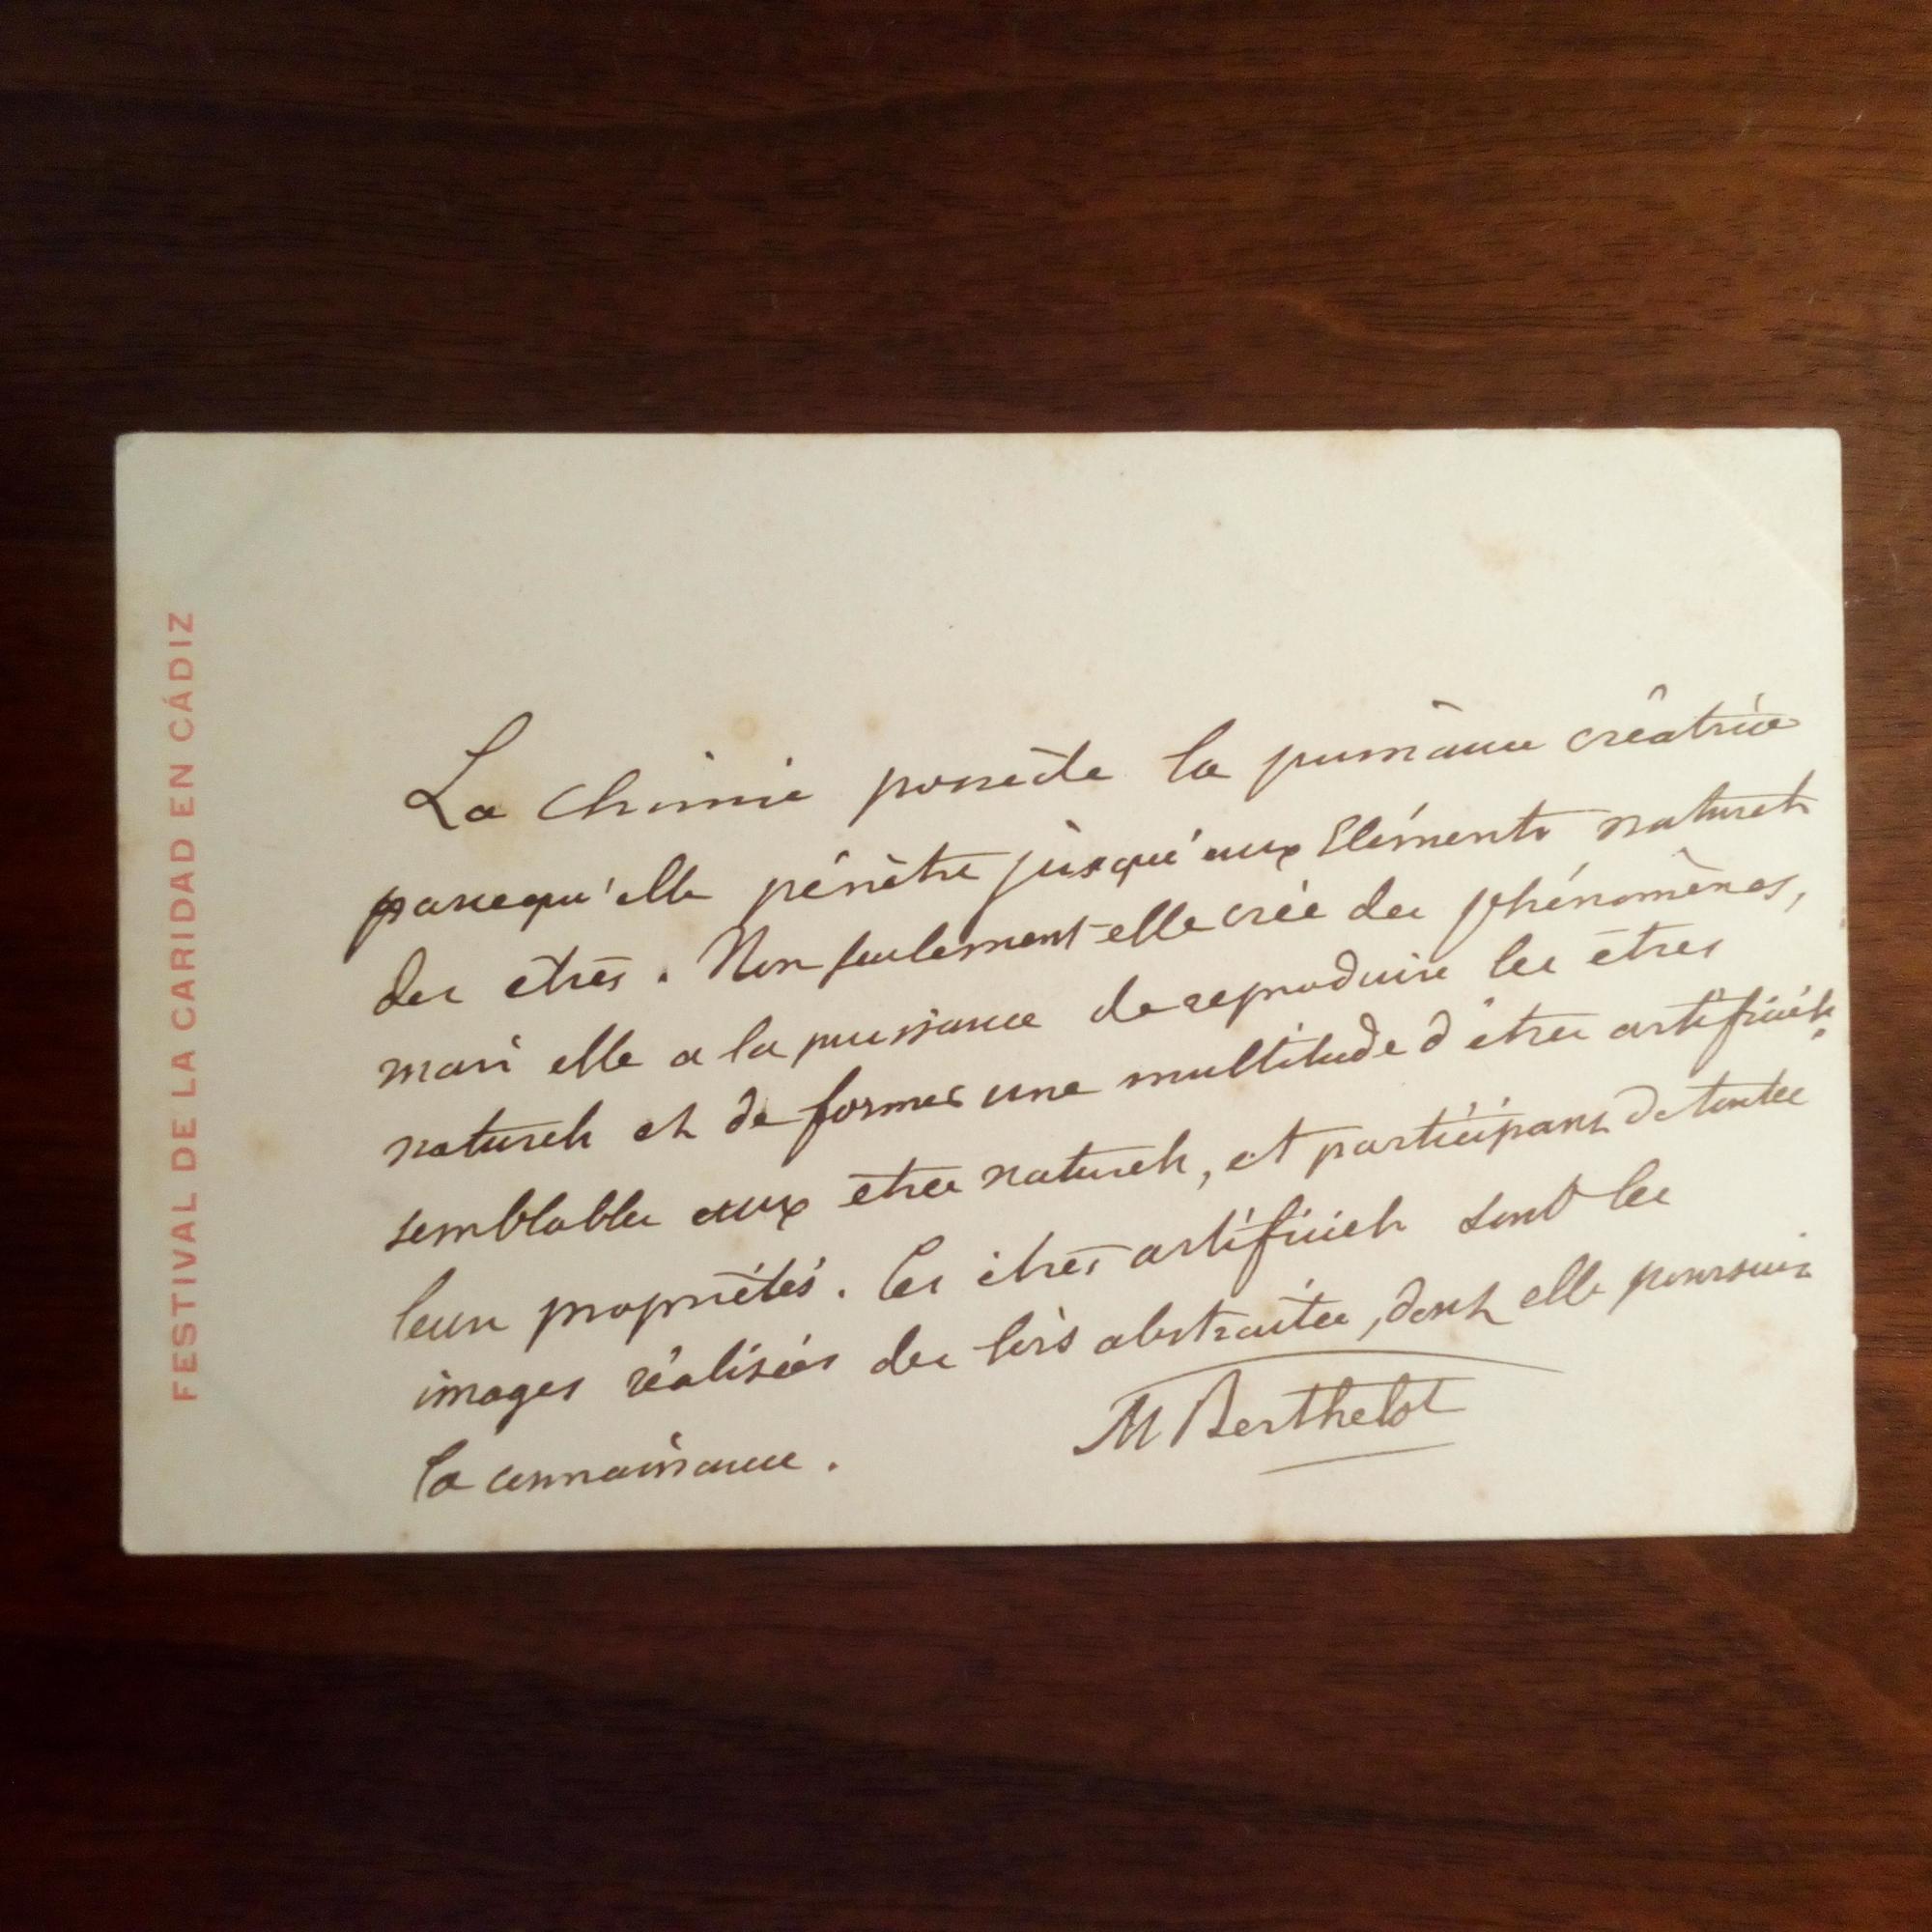 FESTIVAL DE LA CARIDAD EN CÁDIZ
La Chimie possède la puissance créatrice
parcequ'elle pénètre jusqu'aux Eléments naturels
des êtres. Non seulement elle crée des phénomènes,
mais elle a la puissance de reproduire les êtres
naturels et de former une multitude d'êtres artificiels
semblables aux êtres naturels, et participant de toutes
leurs propriétés. Ces êtres artificiels sont les
images réalisées des lois abstraites, dont elle poursuit
la connaissance.
M Berthelot